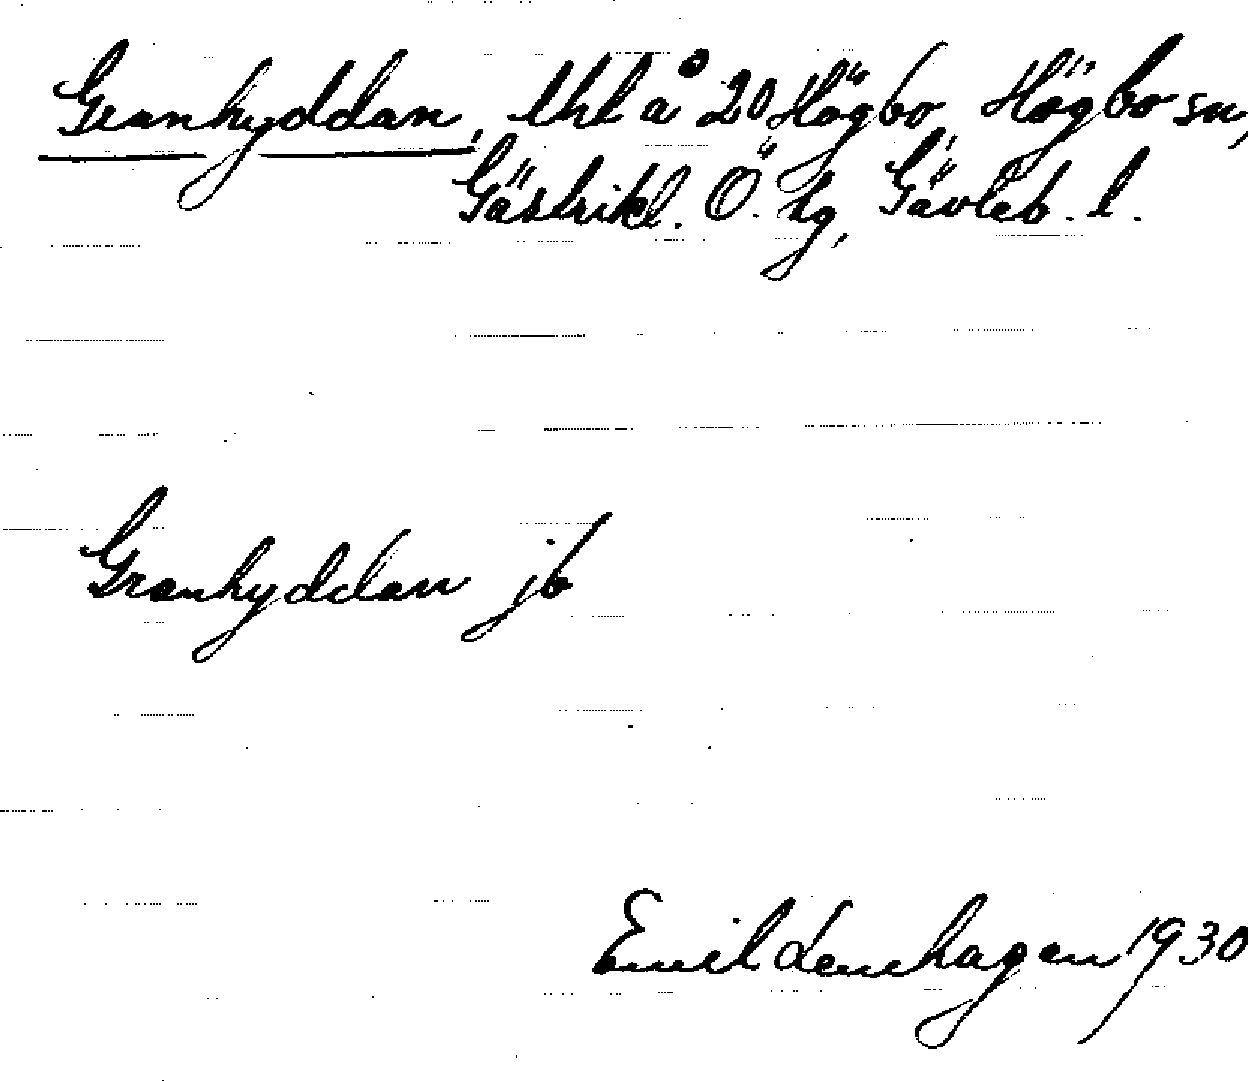 Granhyddan, lht å 20 Högbo, Högbo sn,
Gästrikl. Ö. tg, Gävleb. l.
Granhyddan jb
Emil Lenhagen 1930